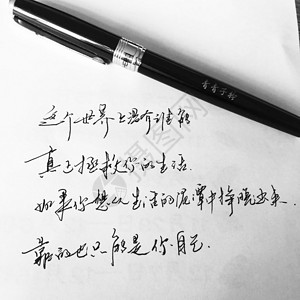 青青子衿
这个世界上没有谁能
真正拯救你的生活
如果你想从生活的泥潭中挣脱出来.
靠的也只能是你自己.